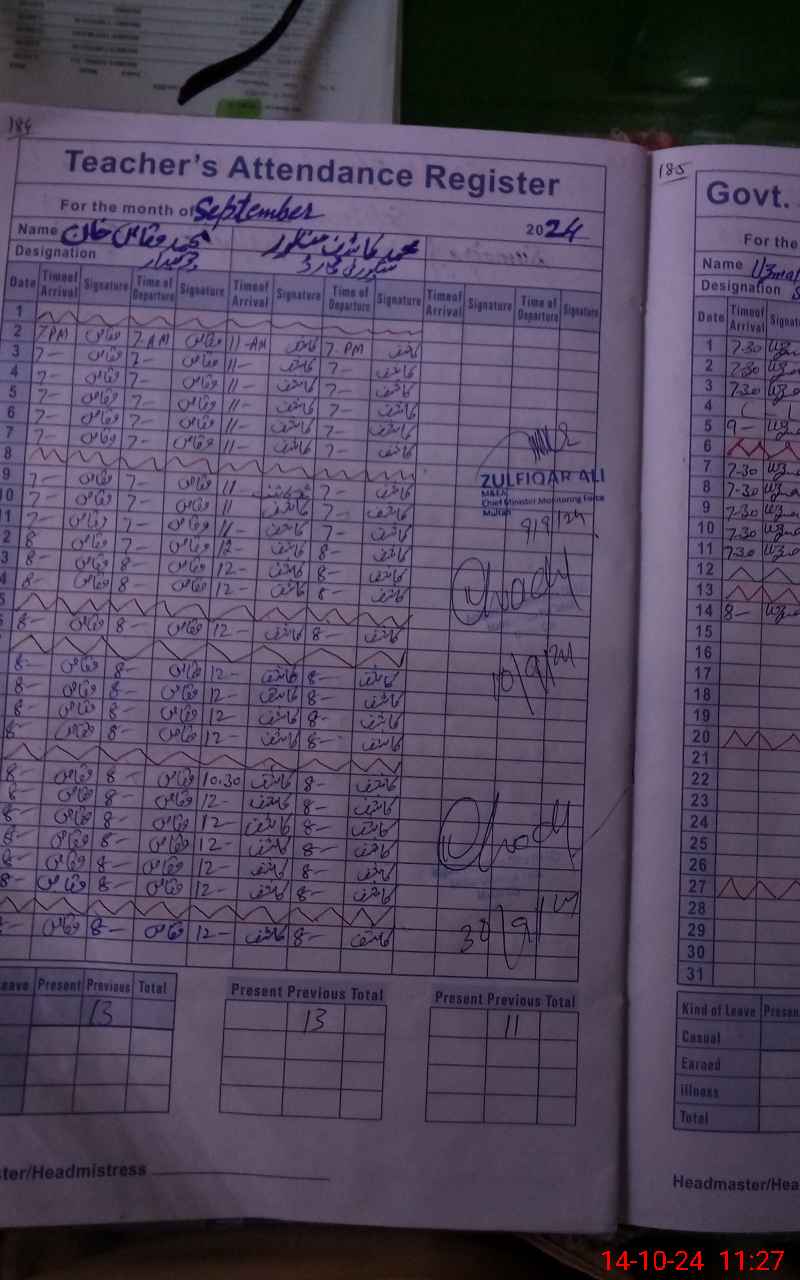 184
Teacher's Attendance Register
For the month of September 2024
Name محمد وقاص خان محمد کاشف منظور
Designation چوکیدار سیکورٹی گارڈ
Date Time of Arrival Signature Time of Departure Signature Time of Arrival Signature Time of Departure Signature Time of Arrival Signature Time of Departure Signature
1
2 7.PM وقاص 7.AM وقاص 11-AM کاشف 7.PM کاشف
3 7- وقاص 7- وقاص 11- کاشف 7- کاشف
4 7- وقاص 7- وقاص 11- کاشف 7- کاشف
5 7- وقاص 7- وقاص 11- کاشف 7- کاشف
6 7- وقاص 7- وقاص 11- کاشف 7- کاشف
7 7- وقاص 7- وقاص 11- کاشف 7- کاشف
8
9 7- وقاص 7- وقاص 11 7- کاشف
10 7- وقاص 7- وقاص 11 کاشف 7- کاشف
11 7- وقاص 7- وقاص 11- کاشف 7- کاشف
2 8 وقاص 7- وقاص 12- کاشف 8- کاشف
3 8- وقاص 8- وقاص 12- کاشف 8- کاشف
4 8- وقاص 8- وقاص 12- کاشف 8- کاشف
5
8- وقاص 8- وقاص 12- کاشف 8- کاشف
8- وقاص 8- وقاص 12- کاشف 8- کاشف
8- وقاص 8- وقاص 12- کاشف 8- کاشف
8- وقاص 8- وقاص 12- کاشف 8- کاشف
8- وقاص 8- وقاص 12- کاشف 8- کاشف
8- وقاص 8- وقاص 10.30 کاشف 8- کاشف
8- وقاص 8- وقاص 12- کاشف 8- کاشف
8- وقاص 8- وقاص 12- کاشف 8- کاشف
8- وقاص 8- وقاص 12- کاشف 8- کاشف
8- وقاص 8- وقاص 12- کاشف 8- کاشف
8- وقاص 8- وقاص 12- کاشف 8- کاشف
8- وقاص 8- وقاص 12- کاشف 8- کاشف
ZULFIQAR ALI
M&EA
Chief Minister Monitoring Force
Multan
9/9/24
10/9/24
30/9/24
eave Present Previous Total
13
Present Previous Total
13
Present Previous Total
11
ter/Headmistress
185
Govt.
For the
Name Uzma
Designation S
Date Time of Arrival Signatu
1 7.30 Uzma
2 7.30 Uzma
3 7.30 Uzma
4
5 9- Uzma
6
7 7-30 Uzma
8 7-30 Uzma
9 7-30 Uzma
10 7.30 Uzma
11 7.30 Uzma
12
13
14 8- Uzma
15
16
17
18
19
20
21
22
23
24
25
26
27
28
29
30
31
Kind of Leave Presen
Casual
Earned
illness
Total
Headmaster/Hea
14-10-24 11:27